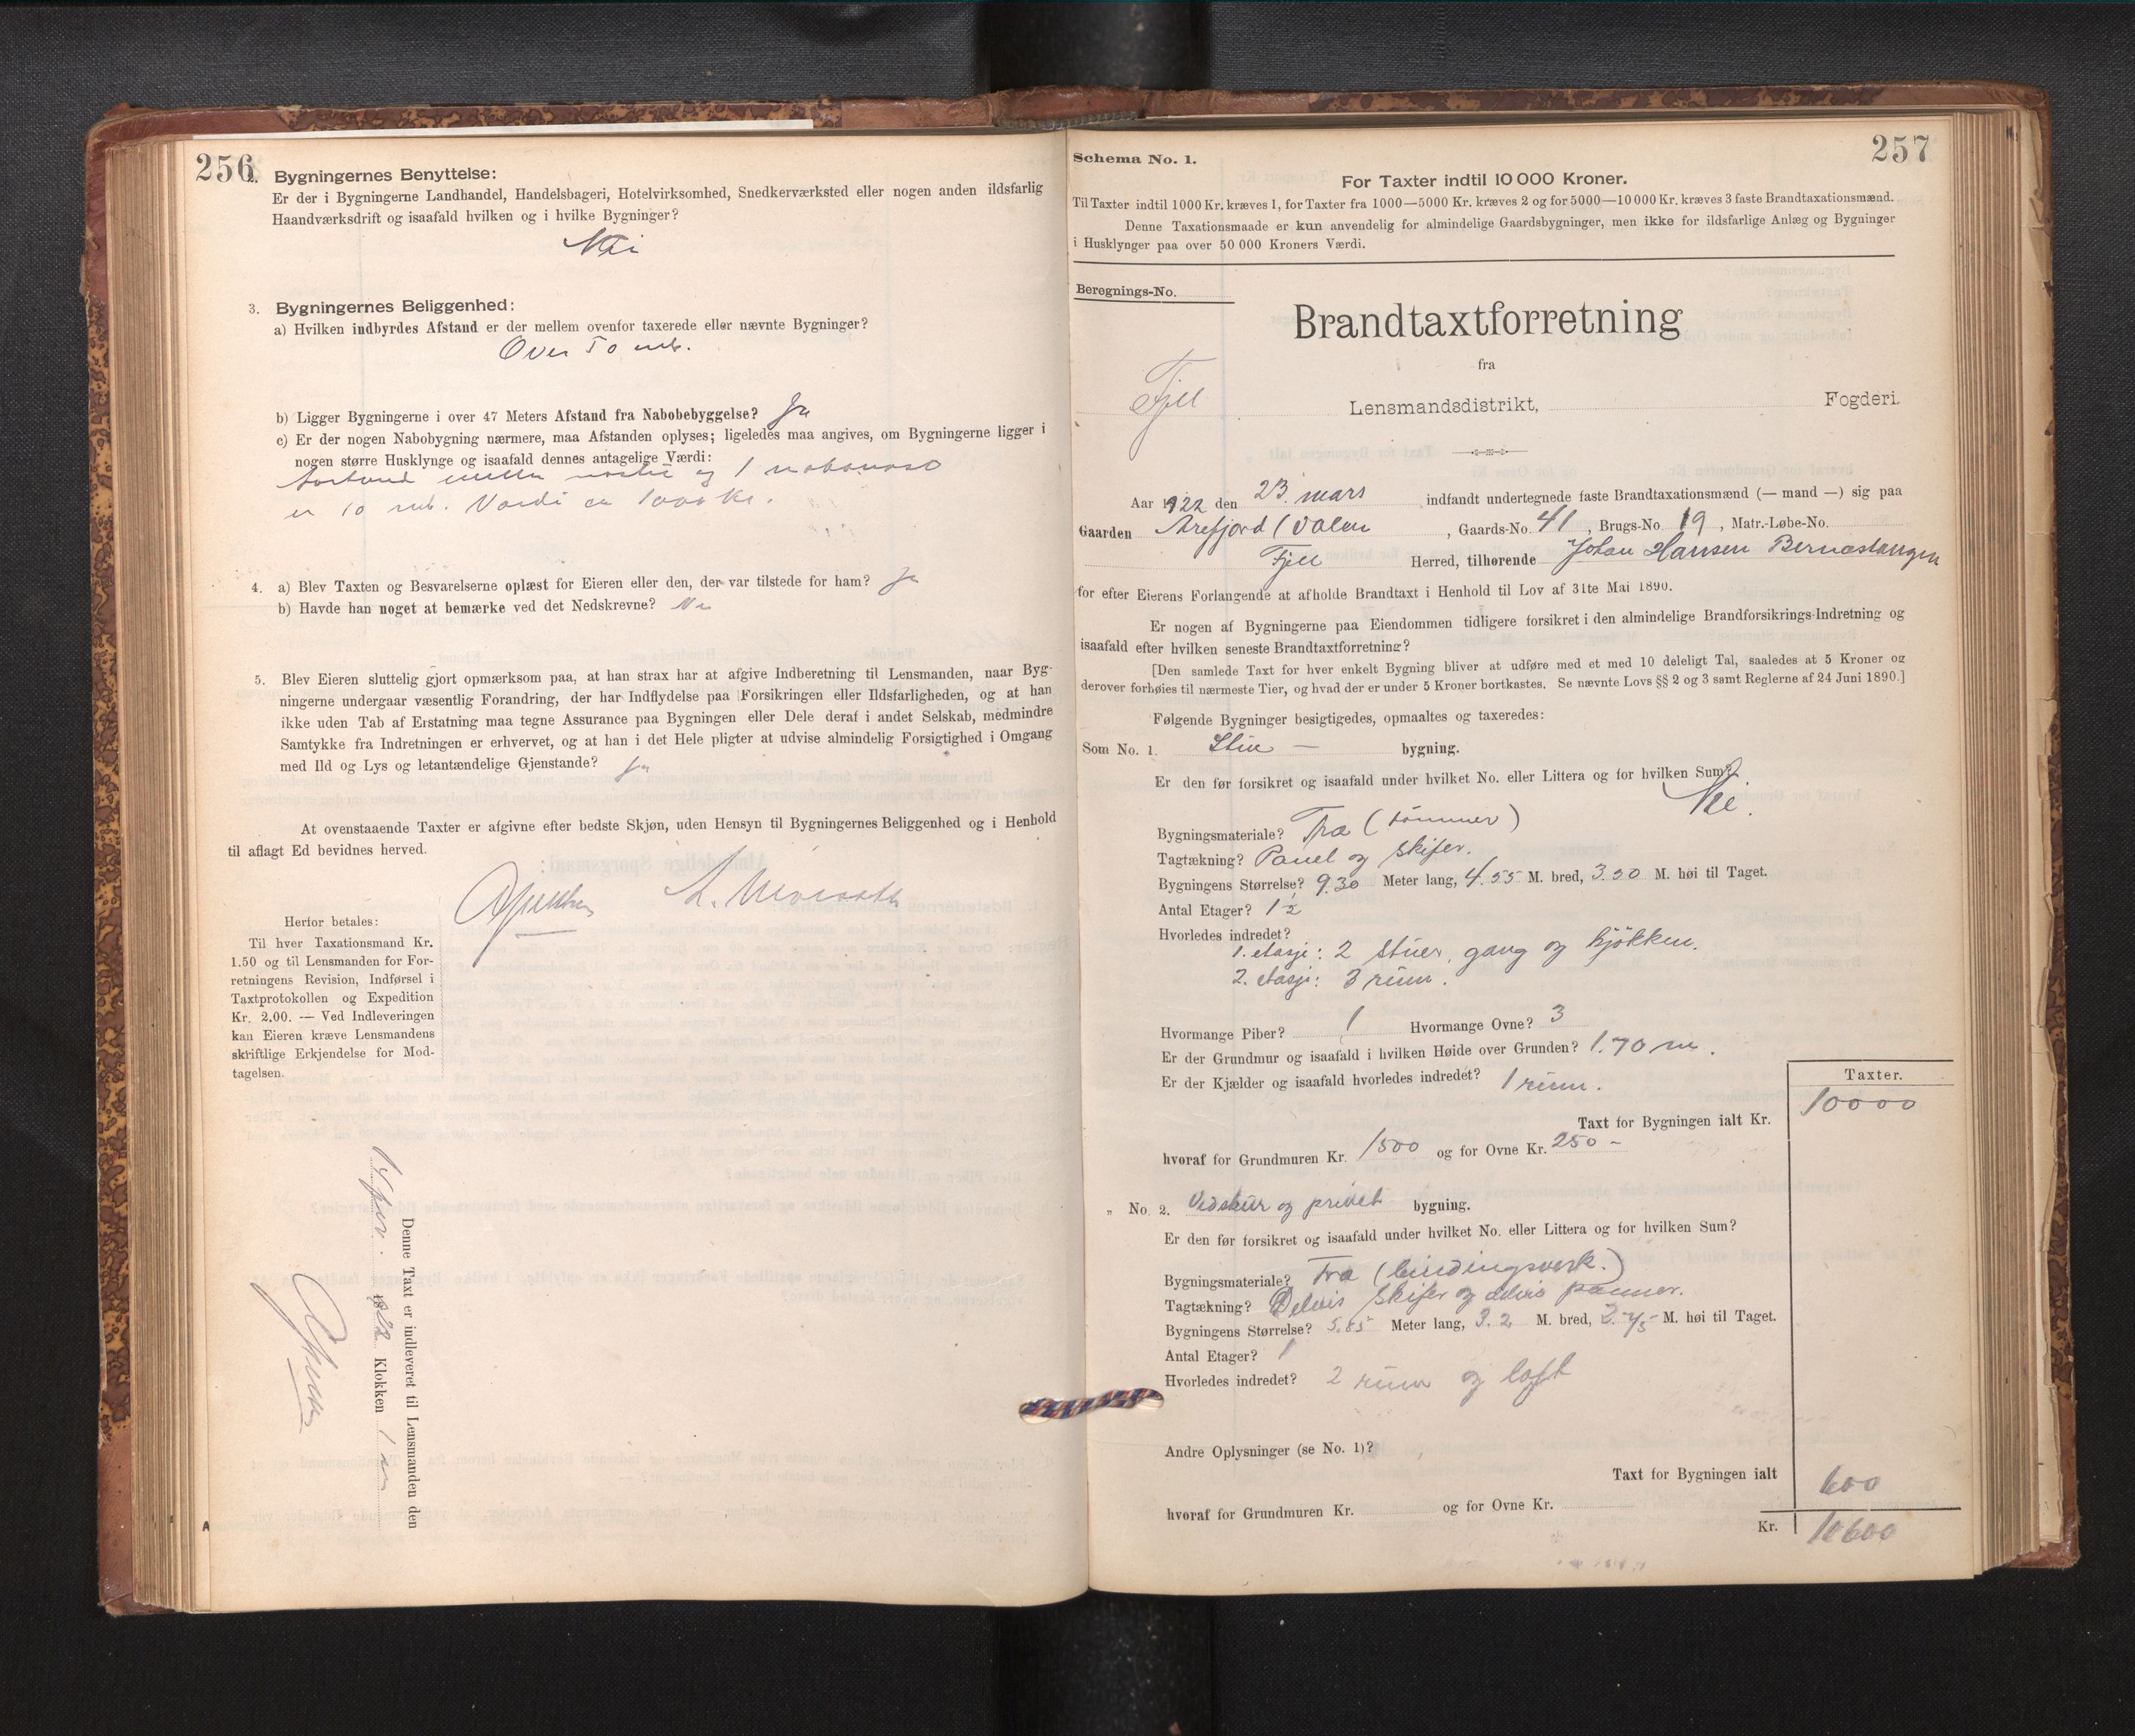 256
2. Bygningernes Benyttelse:
Er der i Bygningerne Landhandel, Handelsbageri, Hotelvirksomhed, Snedkerværksted eller nogen anden ildsfarlig
Haandværksdrift og isaafald hvilken og i hvilke Bygninger?
Nei
3. Bygningernes Beliggenhed:
a) Hvilken indbyrdes Afstand er der mellem ovenfor taxerede eller nævnte Bygninger?
Over 50 mtr.
b) Ligger Bygningerne i over 47 Meters Afstand fra Nabobebyggelse? Ja
c) Er der nogen Nabobygning nærmere, maa Afstanden oplyses; ligeledes maa angives, om Bygningerne ligger i
nogen større Husklynge og isaafald dennes antagelige Værdi:
Avstand mellem og 1
er 10 mtr. Værdi ca 1000 kr.
4. a) Blev Taxten og Besvarelserne oplæst for Eieren eller den, der var tilstede for ham? Ja
b) Havde han noget at bemærke ved det Nedskrevne? Nei
5. Blev Eieren sluttelig gjort opmærksom paa, at han strax har at afgive Indberetning til Lensmanden, naar Byg-
ningerne undergaar væsentlig Forandring, der har Indflydelse paa Forsikringen eller Ildsfarligheden, og at han
ikke uden Tab af Erstatning maa tegne Assurance paa Bygningen eller Dele deraf i andet Selskab, medmindre
Samtykke fra Indretningen er erhvervet, og at han i det Hele pligter at udvise almindelig Forsigtighed i Omgang
med Ild og Lys og letantændelige Gjenstande? Ja
At ovenstaaende Taxter er afgivne efter bedste Skjøn, uden Hensyn til Bygningernes Beliggenhed og i Henhold
til aflagt Ed bevidnes herved.
Herfor betales:
Til hver Taxationsmand Kr.
1.50 og til Lensmanden for For-
retningens Revision, Indførsel i
Taxtprotokollen og Expedition
Kr. 2.00. — Ved Indleveringen
kan Eieren kræve Lensmandens
skriftlige Erkjendelse for Mod-
tagelsen.
Denne Taxt er indleveret til Lensmanden den
1922 Klokken 1
257
Schema No. 1.
For Taxter indtil 10 000 Kroner.
Til Taxter indtil 1000 Kr. kræves 1, for Taxter fra 1000—5000 Kr. kræves 2 og for 5000—10 000 Kr. kræves 3 faste Brandtaxationsmænd.
Denne Taxationsmaade er kun anvendelig for almindelige Gaardsbygninger, men ikke for ildsfarlige Anlæg og Bygninger
i Husklynger paa over 50 000 Kroners Værdi.
Beregnings-No.
Brandtaxtforretning
fra
Fjell Lensmandsdistrikt, Fogderi.
Aar 1922 den 23. mars indfandt undertegnede faste Brandtaxationsmænd (— mand —) sig paa
Gaarden Arefjord (Valen , Gaards-No. 41 , Brugs-No. 19 , Matr.-Løbe-No.
Fjell Herred, tilhørende Johan Hansen Bernastangen
for efter Eierens Forlangende at afholde Brandtaxt i Henhold til Lov af 31te Mai 1890.
Er nogen af Bygningerne paa Eiendommen tidligere forsikret i den almindelige Brandforsikrings-Indretning og
isaafald efter hvilken seneste Brandtaxtforretning?
[Den samlede Taxt for hver enkelt Bygning bliver at udføre med et med 10 deleligt Tal, saaledes at 5 Kroner og
derover forhøies til nærmeste Tier, og hvad der er under 5 Kroner bortkastes. Se nævnte Lovs §§ 2 og 3 samt Reglerne af 24 Juni 1890.]
Følgende Bygninger besigtigedes, opmaaltes og taxeredes:
Som No. 1. Stue — bygning.
Er den før forsikret og isaafald under hvilket No. eller Littera og for hvilken Sum?
Nei.
Bygningsmateriale? Træ (tømmer)
Tagtækning? Panel og skifer.
Bygningens Størrelse? 9.30 Meter lang, 4.55 M. bred, 3.50 M. høi til Taget.
Antal Etager? 1½
Hvorledes indredet?
1. etasje: 2 stuer, gang og kjökken.
2. etasje: 3 rum.
Hvormange Piber? 1 Hvormange Ovne? 3
Er der Grundmur og isaafald i hvilken Høide over Grunden? 1.70 m.
Er der Kjælder og isaafald hvorledes indredet? 1 rum.
Taxter.
Taxt for Bygningen ialt Kr. 10000
hvoraf for Grundmuren Kr. 1500 og for Ovne Kr. 250 –
„ No. 2. Vedskur og privet bygning.
Er den før forsikret og isaafald under hvilket No. eller Littera og for hvilken Sum?
Bygningsmateriale? Træ (bindingsverk.)
Tagtækning? Delvis skifer og delvis panner.
Bygningens Størrelse? 5.85 Meter lang, 3.2 M. bred, 2.75 M. høi til Taget.
Antal Etager? 1
Hvorledes indredet? 2 rum og loft
Andre Oplysninger (se No. 1)?
Taxt for Bygningen ialt 600
hvoraf for Grundmuren Kr. og for Ovne Kr.
Kr. 10600